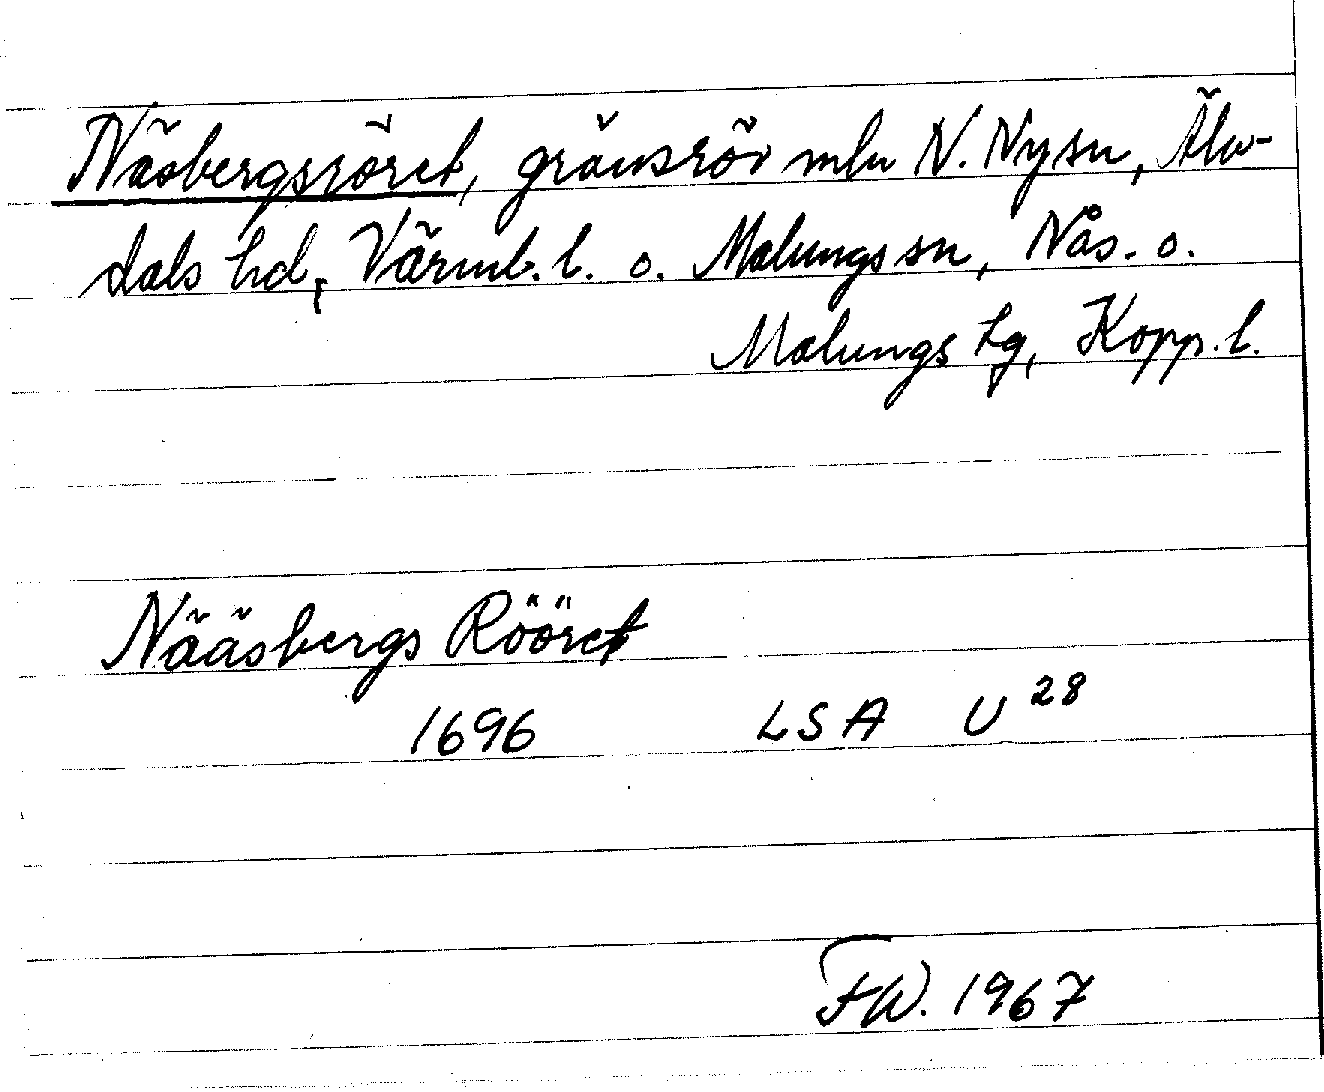 Näsbergsröret, gränsrör mln N. Ny sn, Älv-
dals hd, Värml. l. o. Malungs sn, Nås. o.
Malungs tg, Kopp. l.
Nääsbergs Rööret
1696 LSA U 28
FW. 1967